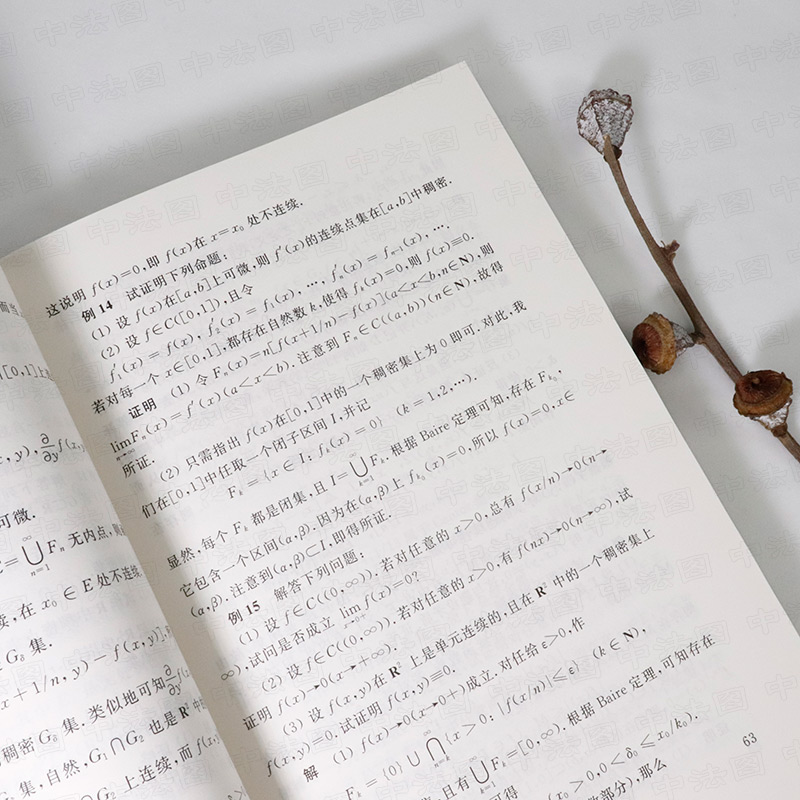 这说明 f(x)=0,即 f(x)在 x=x₀ 处不连续.
例 14 试证明下列命题:
(1) 设 f(x)在[a,b]上可微,则 f′(x)的连续点集在[a,b]中稠密.
(2) 设 f∈C([0,1]),且令
f′₁(x) = f(x), f′₂(x) = f₁(x), …, f′ₙ(x) = fₙ₋₁(x), …,
若对每一个 x∈[0,1],都存在自然数 k,使得 fₖ(x)=0,则 f(x)≡0.
证明 (1) 令 Fₙ(x)=n[f(x+1/n)-f(x)](a<x<b,n∈N),则
lim Fₙ(x)=f′(x)(a<x<b). 注意到 Fₙ∈C((a,b))(n∈N),故得
n→∞
所证.
(2) 只需指出 f(x)在[0,1]中的一个稠密集上为 0 即可. 对此,我
们在[0,1]中任取一个闭子区间 I,并记
Fₖ={x∈I: fₖ(x)=0} (k=1,2,…).
显然,每个 Fₖ 都是闭集,且 I=⋃_{k=1}^{∞}Fₖ. 根据 Baire 定理可知,存在 F_{k₀},
它包含一个区间(α,β). 因为在(α,β)上 f_{k₀}(x)=0,所以 f(x)=0,x∈
(α,β). 注意到(α,β)⊂I,即得所证.
例 15 解答下列问题:
(1) 设 f∈C((0,∞)). 若对任意的 x>0,总有 f(x/n)→0(n→
∞),试问是否成立 lim_{x→0+} f(x)=0?
(2) 设 f∈C((0,∞)). 若对任意的 x>0,有 f(nx)→0(n→∞),试
证明 f(x)→0(x→+∞).
(3) 设 f(x,y)在 R² 上是单元连续的,且在 R² 中的一个稠密集上
f(x,y)=0,试证明 f(x,y)≡0.
解 (1) f(x)→0(x→0+)成立. 对任给 ε>0,作
Fₖ = {0} ∪ ⋂_{n=k}^{∞} {x>0: |f(x/n)|≤ε} (k∈N),
且有 ⋃_{k=1}^{∞}Fₖ=[0,∞). 根据 Baire 定理,可知存在
可得
x₀>0,0<δ₀≤x₀/k₀).
数部分),那么
63
x,y), ∂/∂y f(x,
可微.
⋃_{n=1}^{∞} Fₙ 无内点,
续,在 x₀∈E 处不连续
G_δ 集.
x+1/n,y)-f(x,y)],
稠密 G_δ 集. 类似地可知 ∂/∂y f(x,
集,自然,G₁∩G₂ 也是 R² 中的
上连续,而 f(x,
中法图